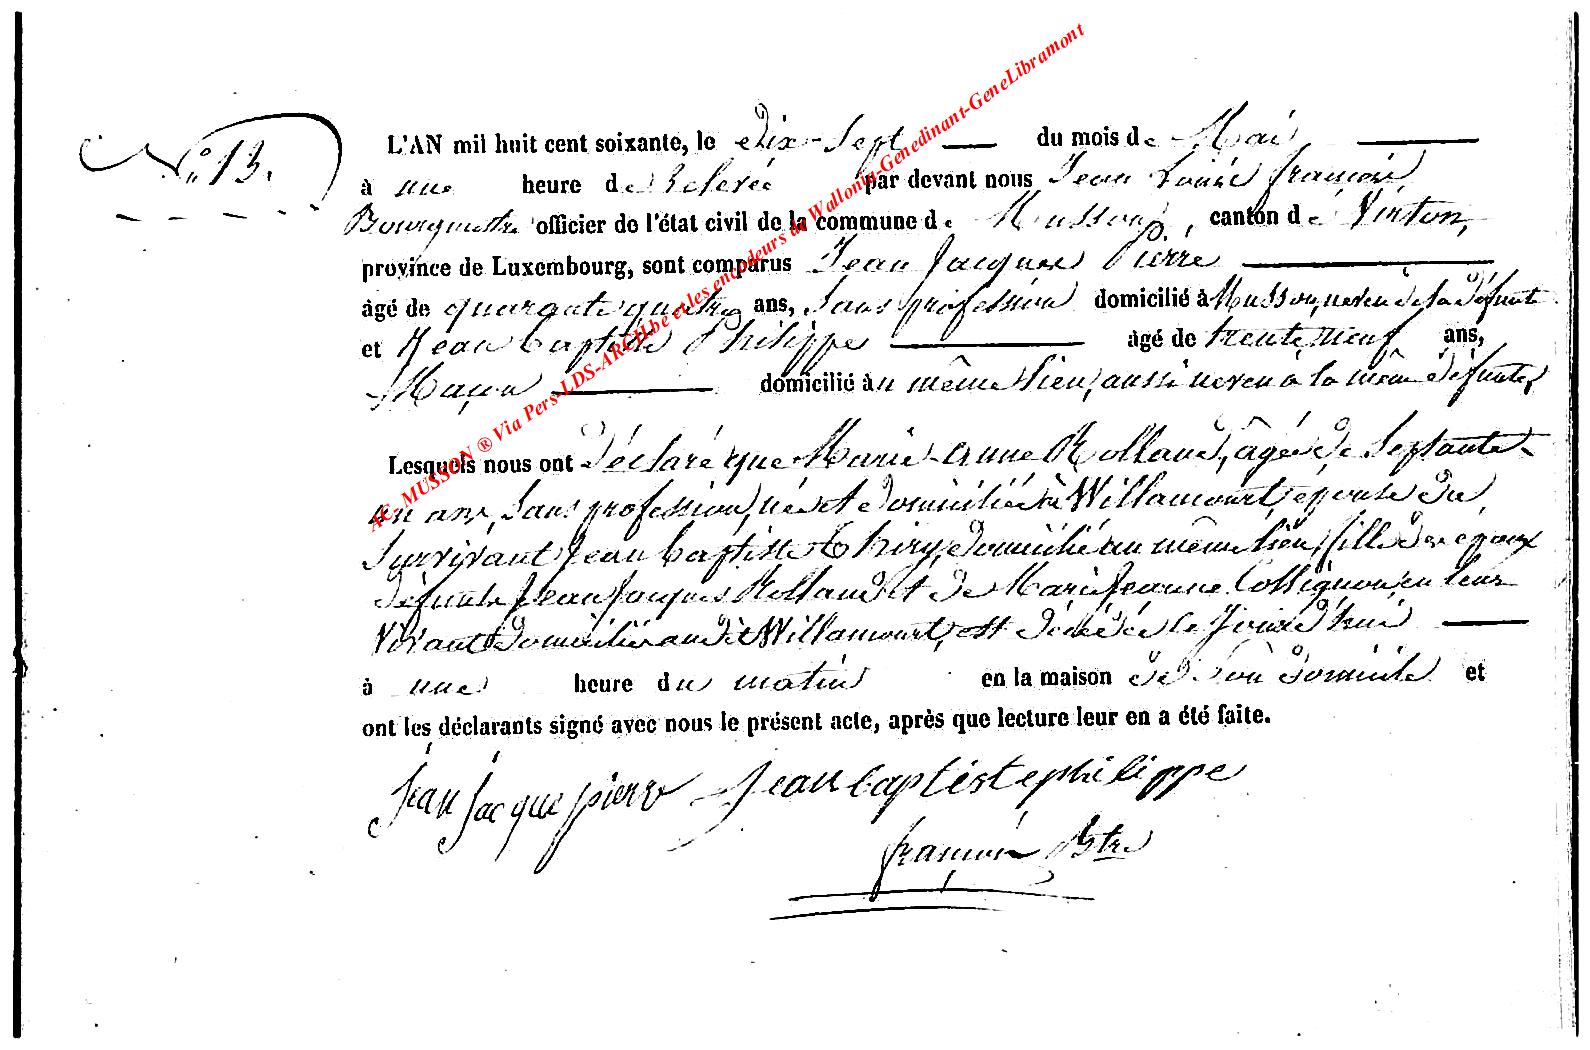 N.° 13.
L'AN mil huit cent soixante, le dix-sept du mois de Mai
à une heure de relevée par devant nous Jean Louis François,
Bourgmestre officier de l'état civil de la commune de Musson, canton de Virton,
province de Luxembourg, sont comparus Jean Jacques Pierre
âgé de quarante quatre ans, sans profession domicilié à Musson, neveu de la défunte
et Jean Baptiste Philippe âgé de trente neuf ans,
Maçon domicilié au même lieu, aussi neveu à la même défunte,
Lesquels nous ont déclaré que Marie-Anne Rolland, âgée de septante-
un ans, sans profession, née et domiciliée à Willancourt, épouse du
survivant Jean Baptiste Thiry, domicilié au même lieu, fille des époux
défunts Jean Jacques Rolland et de Marie Jeanne Collignon, en leur
vivant domiciliés au dit Willancourt, est décédée le jour d'hui
à une heure du matin en la maison de son domicile et
ont les déclarants signé avec nous le présent acte, après que lecture leur en a été faite.
Jean Jacque pierre Jean baptiste philippe
françois Bstre
AC-MUSSON ® Via Pers-LDS-ARCH.be et les encodeurs de Wallonia-Genedinant-GeneLibramont